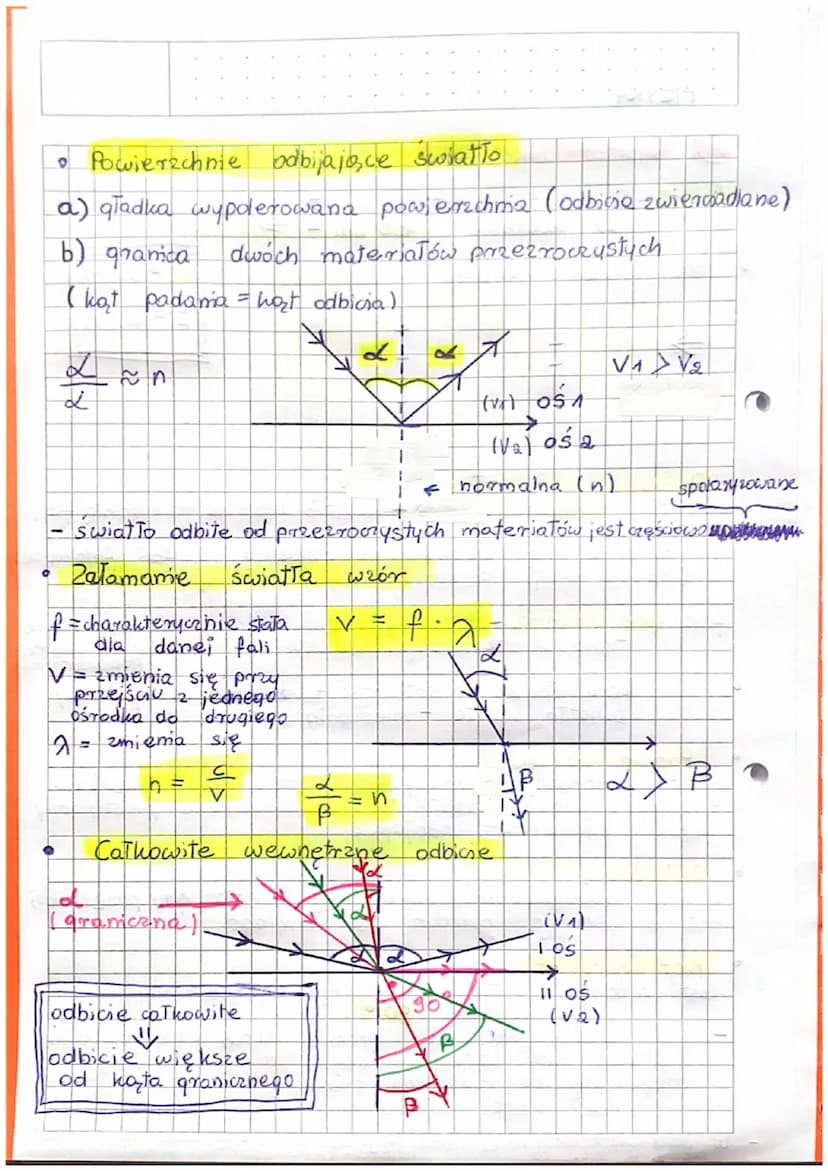 • Powierzchnie odbijające światło
a) gładka wypolerowana powierzchnia (odbicie zwierciadlane)
b) granica dwóch materiałów przezroczystych
(kąt padania = kąt odbicia)
α/α ≈ n
α α
V1 > V2
(V1) oś 1
(V2) oś 2
← normalna (n)
spolaryzowane
- światło odbite od przezroczystych materiałów jest częściowo
• Załamanie światła wzór
f = charakterycznie stała
dla danej fali
V = f · λ
α
V = zmienia się przy
przejściu z jednego
ośrodka do drugiego
λ = zmienia się
n = c/V
α/β = n
β
α > β
• Całkowite wewnętrzne odbicie
α
α
(graniczna)
α
(V1)
I oś
α α
II oś
(V2)
90°
odbicie całkowite
⇓
odbicie większe
od kąta granicznego
β
β